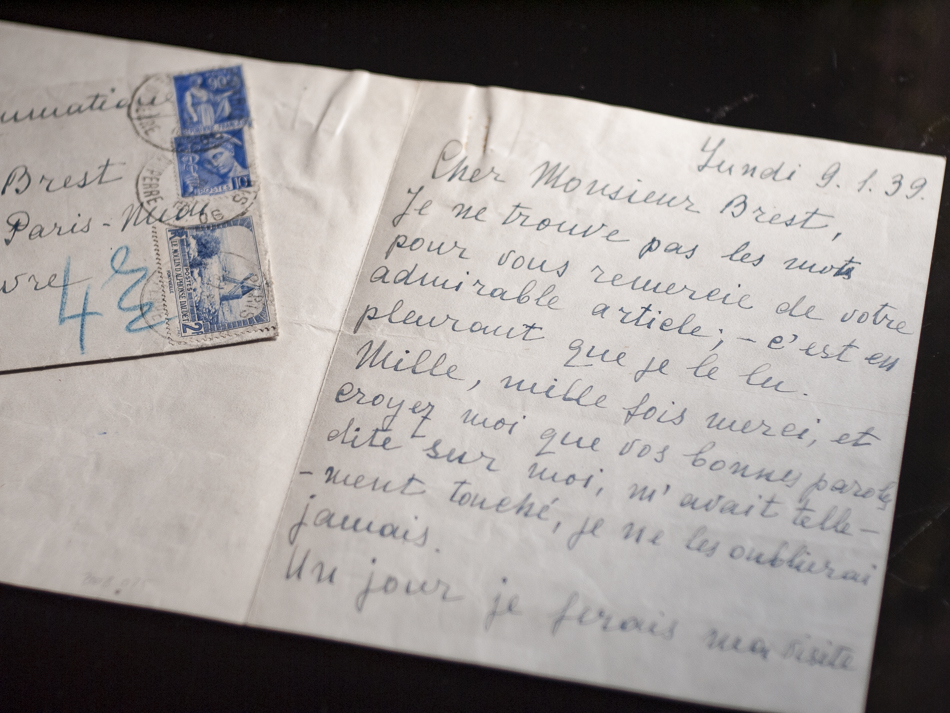 Brest
Paris-Midi
4
90
Lundi 9.1.39.
Cher Monsieur Brest,
Je ne trouve pas les mots
pour vous remercie de votre
admirable article; - c'est en
pleurant que je le lu.
Mille, mille fois merci, et
croyez moi que vos bonnes paroles
dite sur moi, m'avait telle-
-ment touché, je ne les oublierai
jamais.
Un jour je ferais ma visite